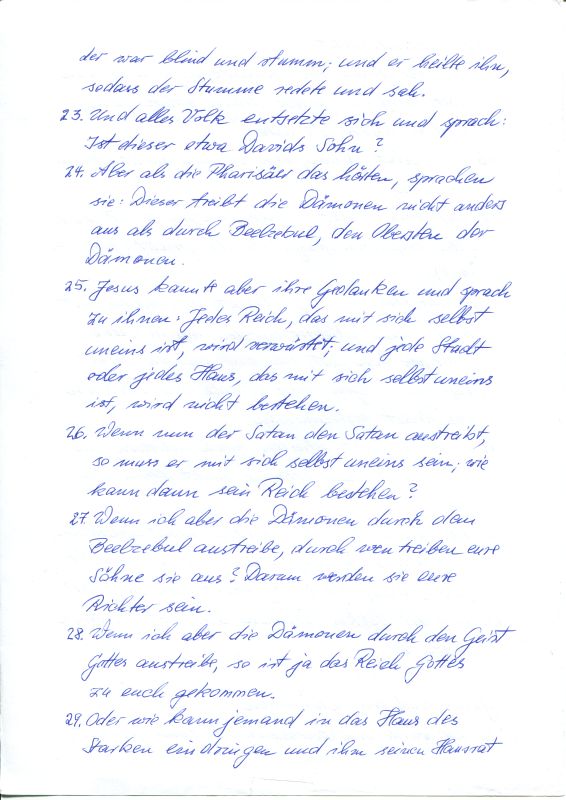 der war blind und stumm; und er heilte ihn,
sodass der Stumme redete und sah.
23. Und alles Volk entsetzte sich und sprach:
Ist dieser etwa Davids Sohn?
24. Aber als die Pharisäer das hörten, sprachen
sie: Dieser treibt die Dämonen nicht anders
aus als durch Beelzebul, den Obersten der
Dämonen.
25. Jesus kannte aber ihre Gedanken und sprach
zu ihnen: Jedes Reich, das mit sich selbst
uneins ist, wird verwüstet; und jede Stadt
oder jedes Haus, das mit sich selbst uneins
ist, wird nicht bestehen.
26. Wenn nun der Satan den Satan austreibt,
so muss er mit sich selbst uneins sein; wie
kann dann sein Reich bestehen?
27. Wenn ich aber die Dämonen durch den
Beelzebul austreibe, durch wen treiben eure
Söhne sie aus? Darum werden sie eure
Richter sein.
28. Wenn ich aber die Dämonen durch den Geist
Gottes austreibe, so ist ja das Reich Gottes
zu euch gekommen.
29. Oder wie kann jemand in das Haus des
Starken eindringen und ihm seinen Hausrat